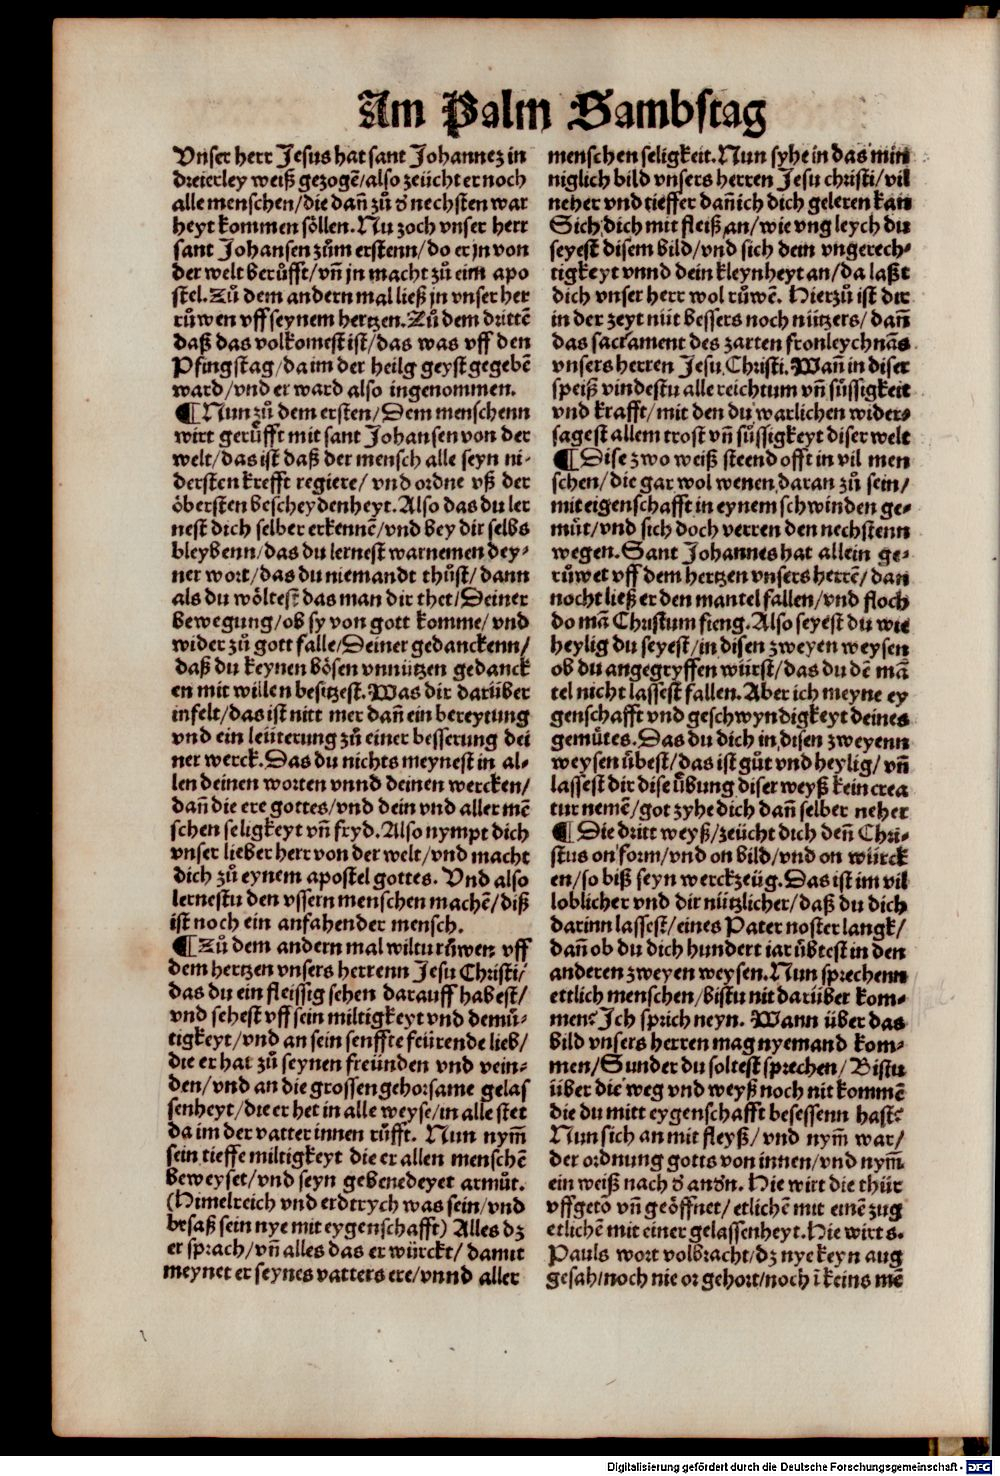 Am Palm Sambstag
Vnser herr Jesus hat sant Johannez in
dreierley weiß gezogē/also zeücht er noch
alle menschen/die dañ zů d̕ nechsten war
heyt kommen söllen. Nu zoch vnser herr
sant Johansen zům erstenn/do er jn von
der welt berůfft/vñ jn macht zů eim apo
stel. Zů dem andern mal ließ jn vnser her
růwen vff seynem hertzen. Zů dem drittē
daß das volkomest ist/das was vff den
Pfingstag/da im der heilg geyst gegebē
ward/vnd er ward also ingenommen.
¶ Nun zů dem ersten/Dem menschenn
wirt gerůfft mit sant Johansen von der
welt/das ist daß der mensch alle seyn ni-
dersten krefft regiere/vnd ordne vß der
öbersten bescheydenheyt. Also das du ler
nest dich selber erkennē/vnd bey dir selbs
bleybenn/das du lernest warnemen dey-
ner wort/das du niemandt thůst/dann
als du wöltest das man dir thet/Deiner
bewegung/ob sy von gott komme/vnd
wider zů gott falle/Deiner gedanckenn/
daß du keynen bösen vnnützen gedanck
en mit willen besitzest. Was dir darüber
infelt/das ist nitt mer dañ ein bereytung
vnd ein leüterung zů einer besserung dei
ner werck. Das du nichts meynest in al-
len deinen worten vnnd deinen wercken/
dañ die ere gottes/vnd dein vnd aller mē
schen seligkeyt vñ fryd. Also nympt dich
vnser lieber herr von der welt/vnd macht
dich zů eynem apostel gottes. Vnd also
lernestu den vssern menschen machē/diß
ist noch ein anfahender mensch.
¶ Zů dem andern mal wiltu růwen vff
dem hertzen vnsers herrenn Jesu Christi/
das du ein fleissig sehen darauff habest/
vnd sehest vff sein miltigkeyt vnd demů-
tigkeyt/vnd an sein senffte feürende lieb/
die er hat zů seynen freünden vnd vein-
den/vnd an die grossen gehorsame gelas
senheyt/die er het in alle weyse/in alle stet
da im der vatter innen růfft. Nun nym̄
sein tieffe miltigkeyt die er allen menschē
beweyset/vnd seyn gebenedeyet armůt.
(Himelreich vnd erdtrych was sein/vnd
besaß sein nye mit eygenschafft) Alles dz
er sprach/vñ alles das er würckt/damit
meynet er seynes vatters ere/vnnd aller
menschen seligkeit. Nun syhe in das min
niglich bild vnsers herren Jesu christi/vil
neher vnd tieffer dañ ich dich geleren kan
Sich dich mit fleiß an/wie vngleych du
seyest disem bild/vnd sich dein vngerech-
tigkeyt vnnd dein kleynheyt an/da laßt
dich vnser herr wol růwē. Hierzů ist dir
in der zeyt nüt bessers noch nützers/dañ
das sacrament des zarten fronleychnās
vnsers herren Jesu Christi. Wañ in diser
speiß vindestu alle reichtum vñ süssigkeit
vnd krafft/mit den du warlichen wider-
sagest allem trost vñ süssigkeyt diser welt
¶ Dise zwo weiß steend offt in vil men
schen/die gar wol wenen daran zů sein/
mit eigenschafft in eynem schwinden ge-
můt/vnd sich doch verren den nechstenn
wegen. Sant Johannes hat allein ge-
růwet vff dem hertzen vnsers herrē/dan
nocht ließ er den mantel fallen/vnd floch
do mā Christum fieng. Also seyest du wie
heylig du seyest/in disen zweyen weysen
ob du angegryffen würst/das du dē mā
tel nicht lassest fallen. Aber ich meyne ey
genschafft vnd geschwyndigkeyt deines
gemůtes. Das du dich in disen zweyenn
weysen übest/das ist gůt vnd heylig/vñ
lassest dir dise übung diser weyß kein crea
tur nemē/got zyhe dich dañ selber neher
¶ Die dritt weyß/zeücht dich deñ Chri-
stus on form/vnd on bild/vnd on würck
en/so biß seyn werckzeüg. Das ist im vil
loblicher vnd dir nützlicher/daß du dich
darinn lassest/eines Pater noster langk/
dañ ob du dich hundert iar übtest in den
anderen zweyen weysen. Nun sprechenn
ettlich menschen/bistu nit darüber kom-
men? Ich sprich neyn. Wann über das
bild vnsers herren mag nyemand kom-
men/Sunder du soltest sprechen/Bistu
über die weg vnd weyß noch nit kommē
die du mitt eygenschafft besessenn hast?
Nun sich an mit fleyß/vnd nym̄ war/
der ordnung gotts von innen/vnd nym̄
ein weiß nach d̕ and̕n. Hie wirt die thür
vffgetō vñ geöffnet/etlichē mit einē zug
etlichē mit einer gelassenheyt. Hie wirt s.
Pauls wort volbracht/dz nye keyn aug
gesah/noch nie or gehort/noch ī keins mē
Digitalisierung gefördert durch die Deutsche Forschungsgemeinschaft - DFG